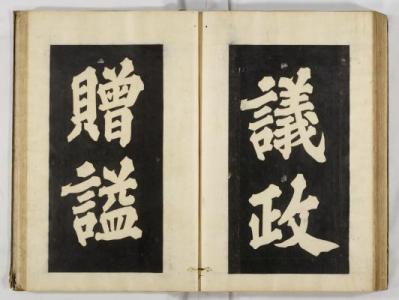 議政
贈謚